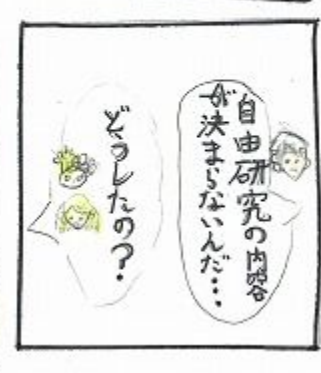 自由研究の内容
が決まらないんだ…
どうしたの?